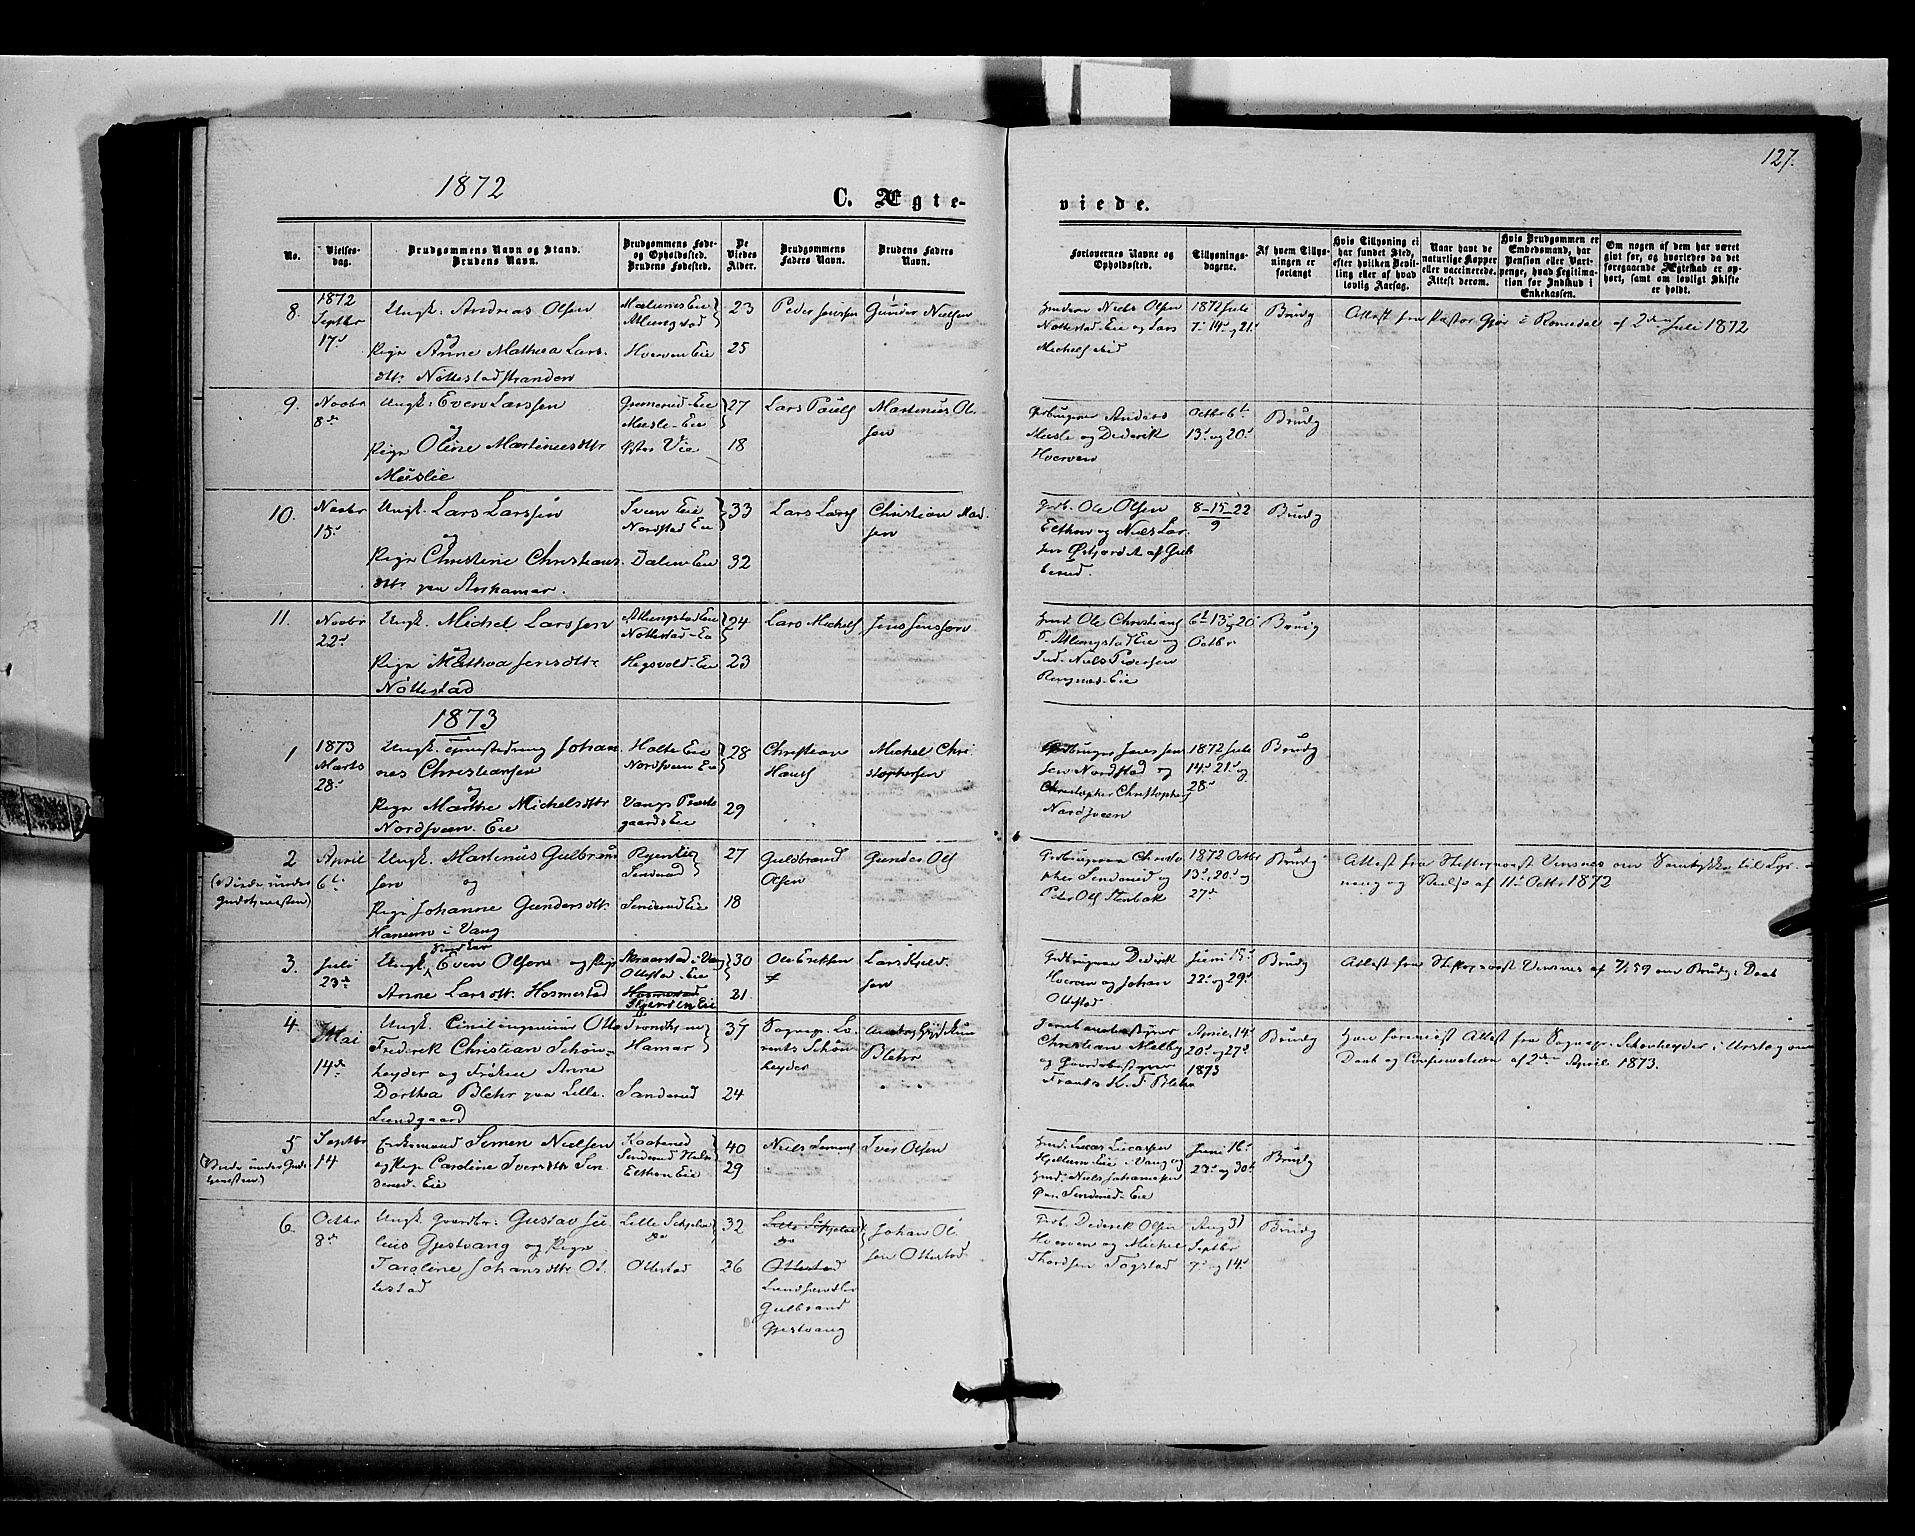 127.
1872
C. Ægte-
viede.
No.
Vielses-
dag.
Brudgommens Navn og Stand.
Brudens Navn.
Brudgommens Føde-
og Opholdssted.
Brudens Fødested.
De
Viedes
Alder.
Brudgommens
Faders Navn.
Brudens Faders
Navn.
Forlovernes Navne og
Opholdssted.
Tillysnings-
dagene.
Af hvem Tillys-
ningen er
forlangt
Hvis Tillysning ei
har fundet Sted,
efter hvilken Bevil-
ling eller af hvad
lovlig Aarsag.
Naar havt de
naturlige Kopper
eller vaccinerede.
Attest derom.
Hvis Brudgommen er
Embedsmand, har
Pension eller Vart-
penge, hvad Legitima-
tion for Indskud i
Enkekassen.
Om nogen af dem har været
givt før, og hvorledes da det
foregaaende Ægteskab er op-
hørt, samt om lovligt Skifte
er holdt.
8.
1872
Septbr
17d
Ungk: Andreas Olsen
og
Pige Anne Mathea Lars-
dttr Nøttestadstranden
Atlungstad
Hverven Eie
23
25
Peder Jenssen
Gunder Nielsen
Niels Olsen
Nøttestad-Eie og Lars
1872 Juli
7d 14d og 21d
Brudg
Attest fra Pastor Gjør i Romedal af 2den Juli 1872
9.
Novbr
8de
Ungk: Even Larssen
og
Pige Oline Martinusdttr
Muslie
Gremerud-Eie
Musle-Eie
Vie
27
18
Lars Pauls
Martinus Ol-
sen
Gbruger Anders
Musle og Dederik
Hverven
Octbr 6t
13d og 20d
Brudg
10.
Novbr
15d
Ungk. Lars Larssen
og
Pige Christine Christians-
dttr paa Storhamar.
Sveen Eie
Nordstad Eie
Dalen Eie
33
32
Lars Lars
Christian Mad-
sen
Ole Olsen
og Niels Lar-
8-15-22
9
Brudg
11.
Novbr
22d
Ungk. Michel Larssen
og
Pige Mathea Jensdttr
Nøttestad
Atlungstad Eie
Nøttestad-Eie
Hegsvold-Eie
24
23
Lars Michels
Jens Jenssen
Ole Christians
Atlungstad Eie og
Ind. Niels Pedersen
6t 13d og 20d
Octbr
Brudg
1873
1
1873
Marts
28d
Ungk. Johan-
nes Christiansen
og
Pige Marthe Michelsdttr
Nordsveen-Eie
Holte Eie
Nordsveen Eie
Vangs Præste-
gaards Eie
28
29
Christian
Hans
Michel Chri-
stophersen
Jens Jens-
sen Nordstad og
Christopher Christophers
Nordsveen
1872 Juli
14d 21d og
28d
Brudg
2
(Viede under
Gudstjenesten)
April
6te
Ungk. Martinus Gulbrand-
sen
og
Pige Johanne Gundersdttr
Hanum i Vang
Ryen Eie
Sinderud
Sinderud Eie
27
18
Guldbrand
Olsen
Gunder Ols
Gbruger Christo-
pher Sinderud og
Peter Ols Stenbak
1872 Octbr
13d, 20d og
27de
Brudg
Attest fra Stiftsprovst Vensnes om Samtykke til Lys-
ning og Vielse af 11d Octbr 1872
3.
Juli
23de
Ungk. Even Olsen og Pige
Anne Larsdttr. Hosmestad
Skraarstad i Vang
Ottestad-Eie
Hosmestad
30
21.
Ole Eriksen
Gdbruger Dederik
Hverven og Johan
Ottestad
Juni 15d
22d og 29d
Brudg
Attest fra Stiftsprovst Vensnes af 7/7 59 om Brudg: Daab
4.
Mai
14de
Ungk. Civilingeniør Otto
Frederik Christian Schøn-
heyder og Frøken Anne
Dorthea Blehr paa Lille-
Lundgaard
Trondhjem
Hamar
Sanderud
37
24
Sogepr. Lo-
rents Schøn-
heyder
Blehr
Jernbanebestyrer
Christian Melby
og Gaardsbestyrer
Frants K. F. Blehr
April 14d
20d og 27d
1873
Brudg
Har foreviist Attest fra Sognepr. Schønheyder i Urskog om
Daab og Confirmation af 2den April 1873.
5
(Viede under Guds-
tjenesten)
Septbr
14
Enkemand Simen Nielsen
og Pige Caroline Iversdttr Sin-
derud-Eie
Sinderud
Elthon Eie
40
29
Niels Simens
Iver Olsen
Lucas Lucassen
Hjellum Eie i Vang og
Niels Johannesen
Sinderud-Eie
Juni 16d
23d og 30te
Brudg
6.
Octbr
8de
Ungk. Gaardbr: Gustav Ju-
lius Gjestvang og Pige
Caroline Johansdttr Ot-
testad
Lille Schjelve
Do
Ottestad
32
26
Lille Schjelve
Do
Ottestad
Gulbrand
Gjestvang
Johan Ol-
sen Ottestad
Gdb. Dederik Olsen
Hverven og Michel
Thordsen Fogstad
Aug 31
Septbr
7d og 14d
Brudg